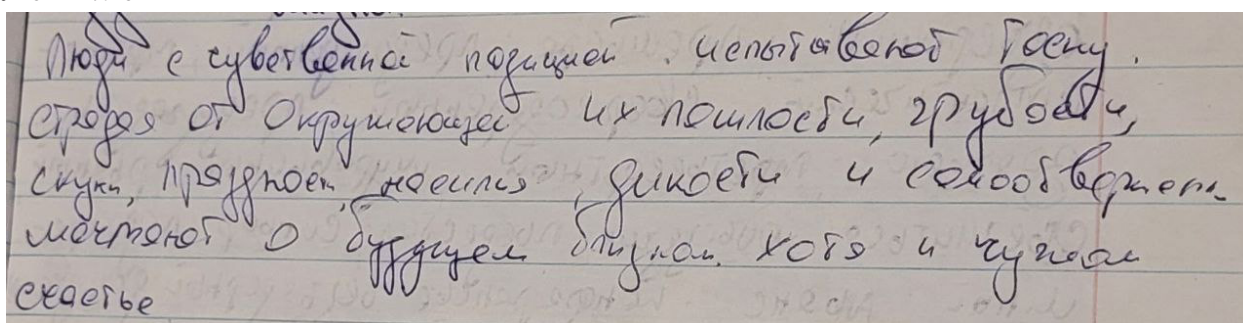 Люди с чувственной позицией испытывают тоску,
страдая от окружающей их пошлости, грубости,
скуки, празднос, насилия, дикости и самоотвержен
мечтают о будущем близком, хотя и чужом
счастье